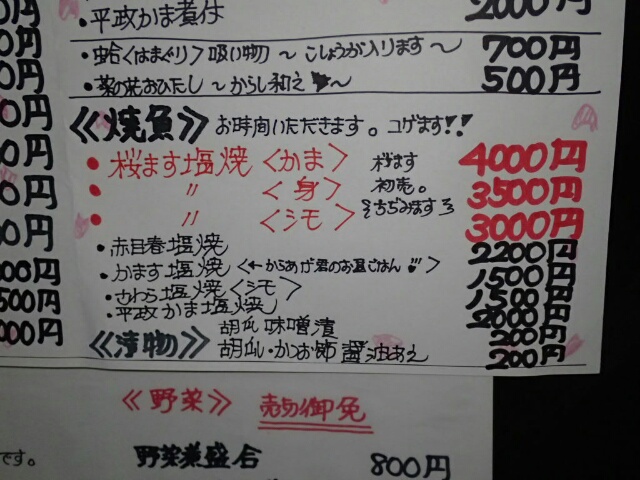 ・平政かま煮付 2000円
・蛤<はまぐり>吸い物～こしょうが入ります～ 700円
・菜の花おひたし～からし和え～ 500円
≪焼魚≫お時間いただきます。コゲます!!
・桜ます塩焼<かま> 桜ます 4000円
・〃<身> 初売。 3500円
・〃<シモ> ちぢみます 3000円
・赤目春塩焼 2200円
・かます塩焼<←からあが君のお昼ごはん> 1500円
・さわら塩焼<シモ> 1500円
・平政かま塩焼 2000円
≪漬物≫胡瓜味噌漬 200円
胡瓜・かつお節醤油あえ 200円
≪野菜≫売切御免
野菜煮盛合 800円
です。
円
円
円
円
円
円
円
000円
500円
000円